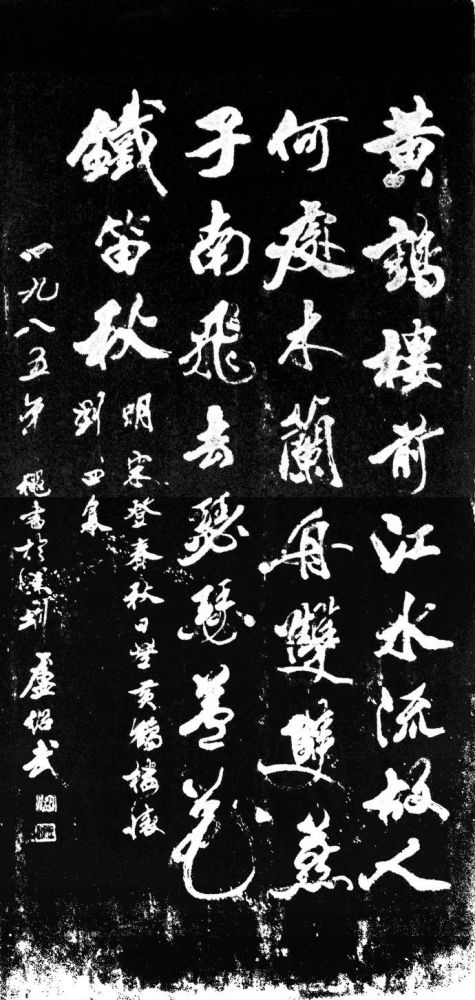 黄鶴樓前江水流故人
何處木蘭舟雙雙燕
子南飛去瑟瑟蘆花
鐵笛秋
明 宋登春秋日登黄鶴樓懷
劉四集
一九八五年 书於深圳 盧武